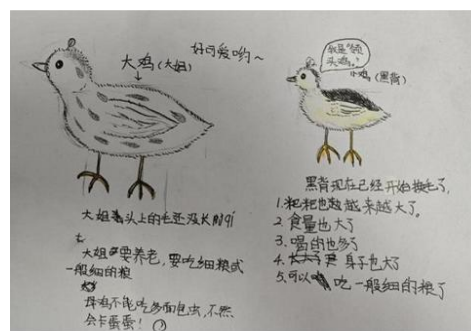 好可爱哟～
大鸡(大姐)
我是"领
头鸡。"
小鸡(黑背)
大姐头上的毛还没长削引
大姐要养老，要吃细粮或
一般细的粮
母鸡不能吃多面包虫，不然
会卡蛋蛋！
黑背现在已经开始换毛了，
1.粑粑也越越来越大了。
2.食量也大了
3.喝的也多了
4.身子也大了
5.可以吃一般细的粮了